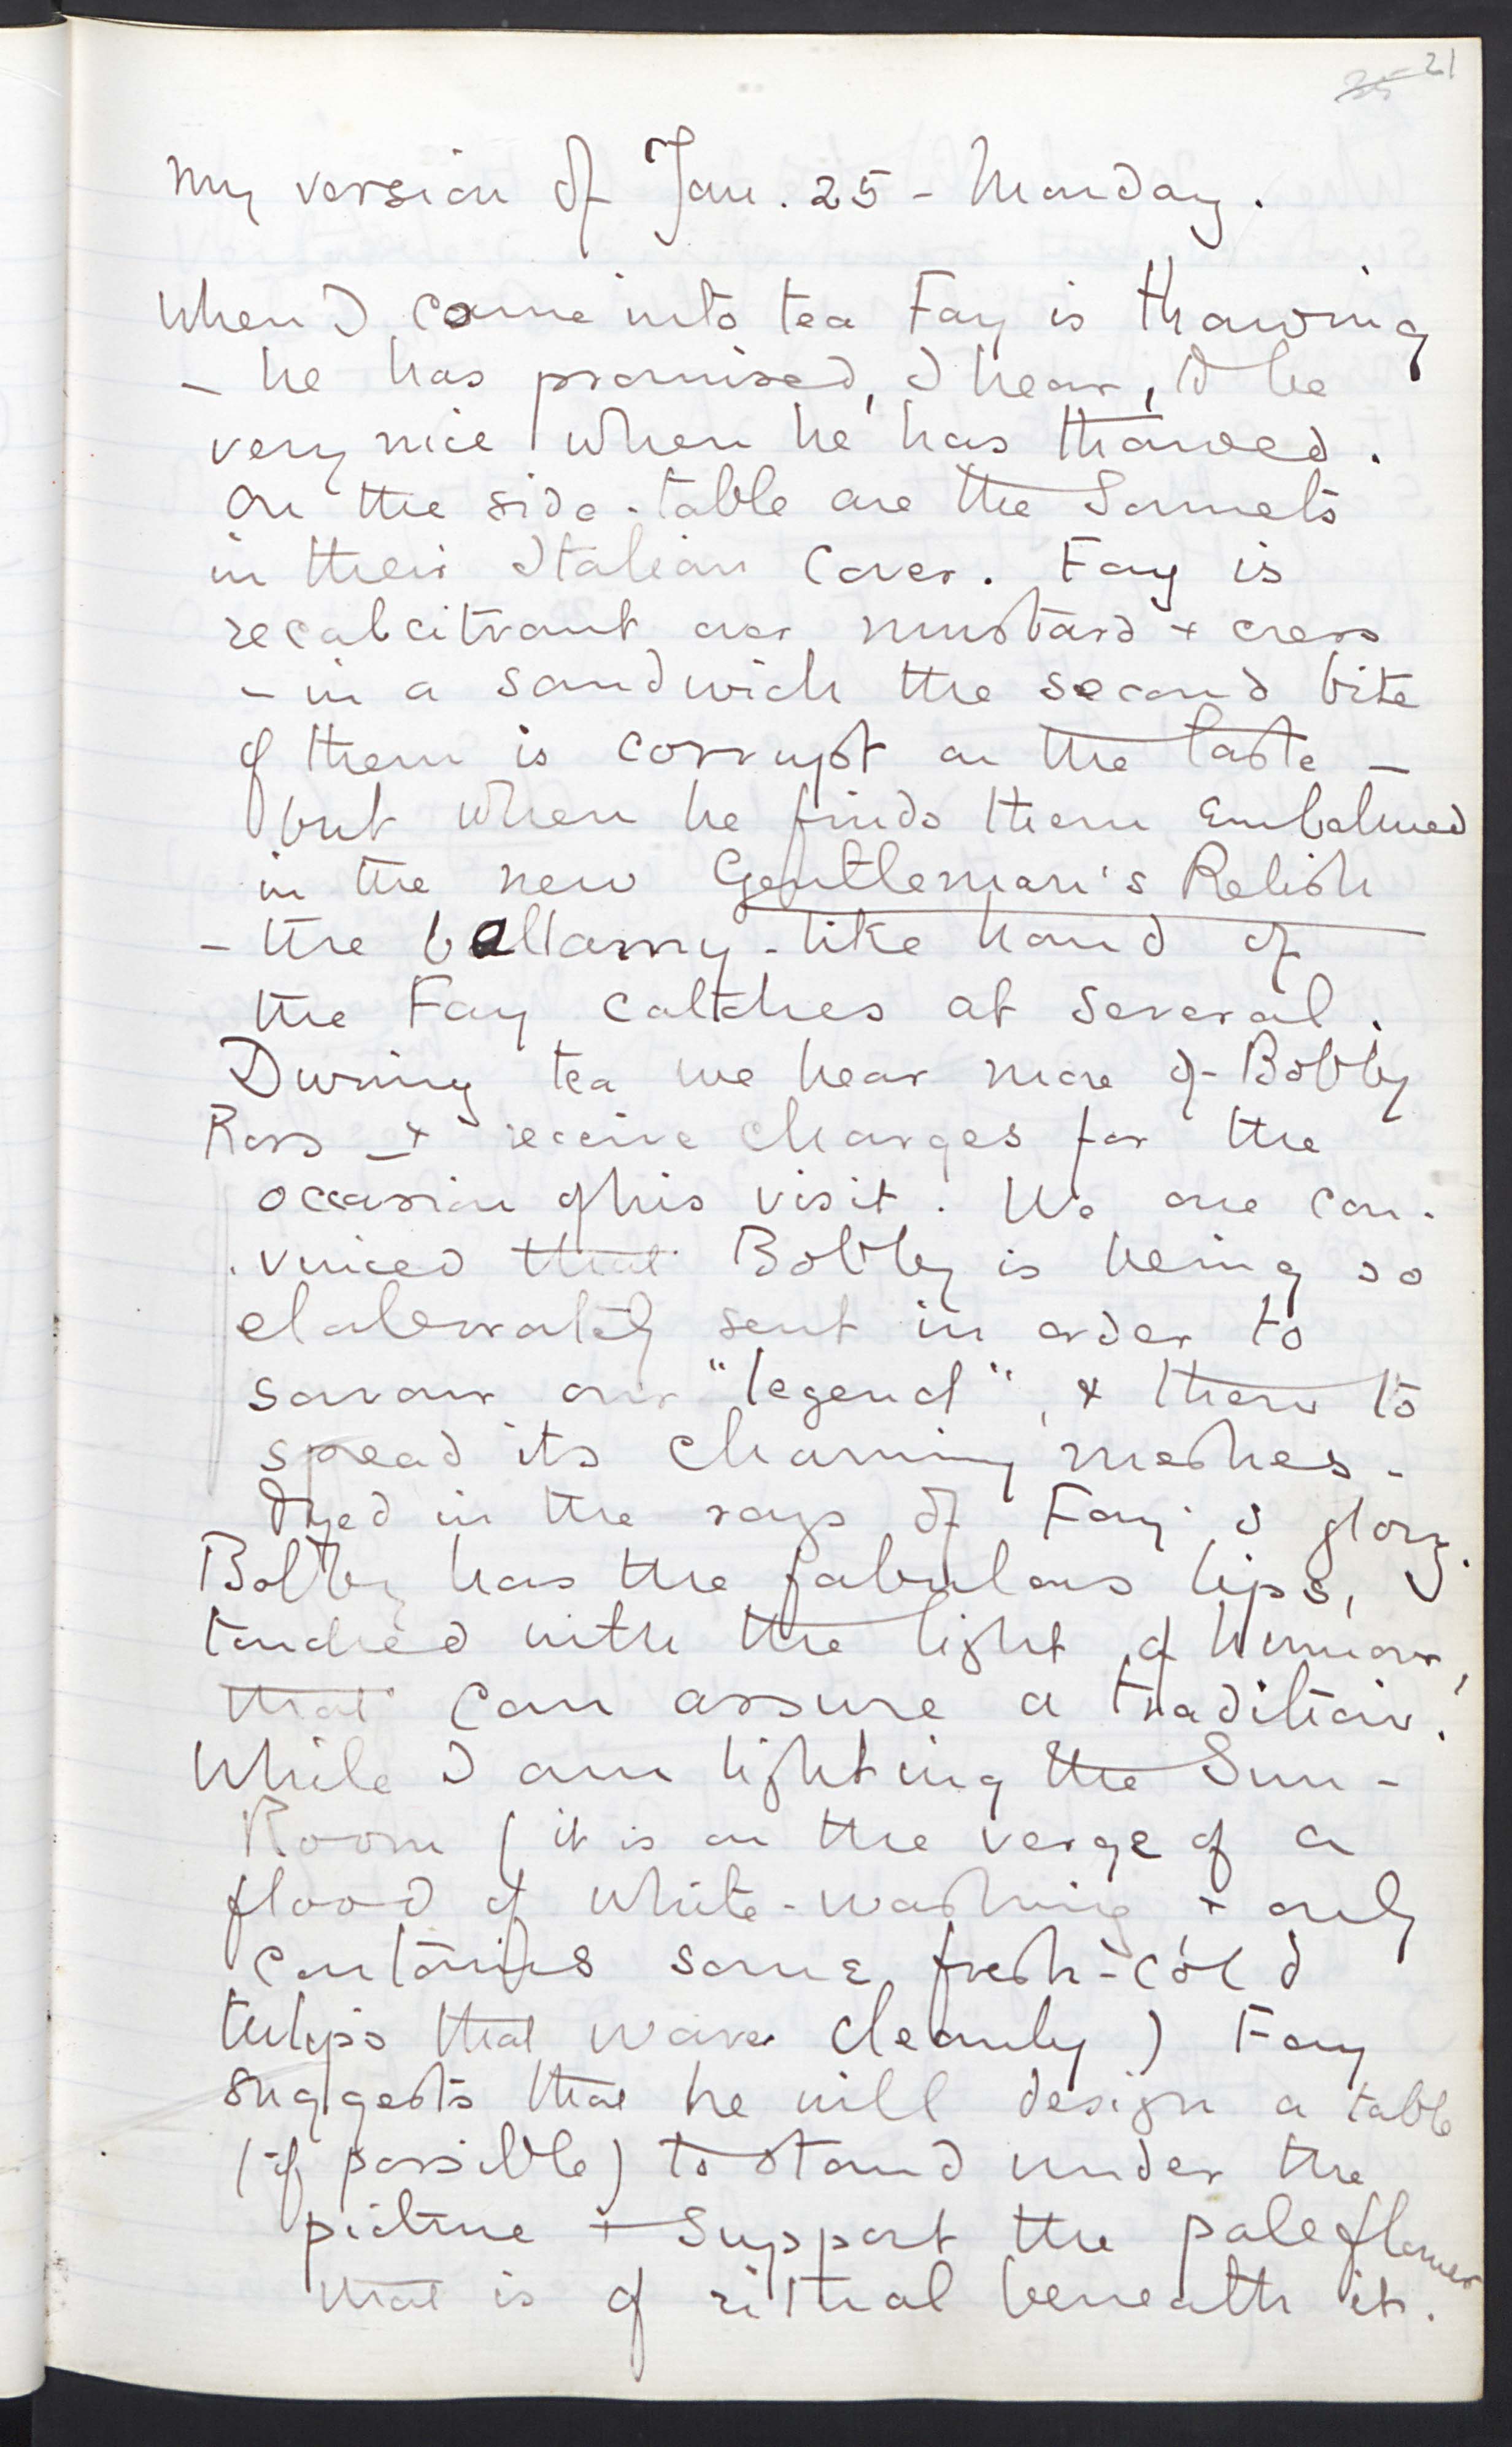 25 21
My version of Jan. 25 - Monday.
When I come into tea Fay is thawing
- he has promised, I hear, to be
very nice when he has thawed.
On the side-table are the Sonnets
in their Italian cover. Fay is
recalcitrant over mustard + cress
- in a sandwich the second bite
of them is corrupt on the taste -
but when he finds them embalmed
in the new Gentleman's Relish
- the bellamy-like hand of
the Fay catches at several.
During tea we hear more of Bobby
Ross - + receive charges for the
occasion of his visit. We are con-
vinced that Bobby is being so
elaborately sent in order to
savour our "legend", + then to
spread its charming meshes -
dyed in the rays of Fay's glory.
Bobby has the fabulous lips,
touched with the light of humour,
that can assure a tradition.
While I am lighting the Sun-
Room (it is on the verge of a
flood of white-washing + only
contains some fresh-cold
tulips that wave cleanly) Fay
suggests that he will design a table
(if possible) to stand under the
picture + support the pale flower
that is of ritual beneath it.